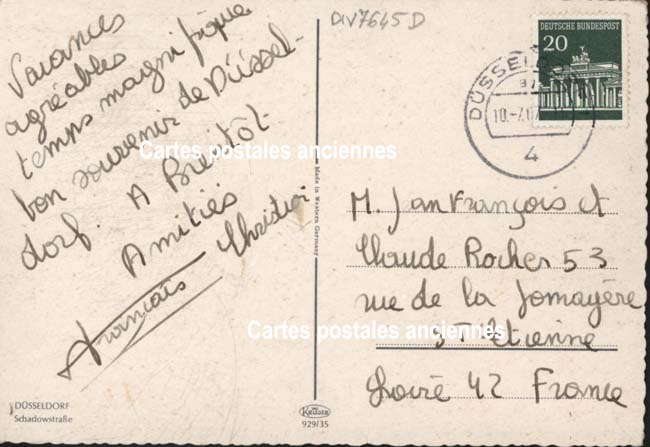 DIV7645D
Vacances
agréables
temps magnifique
bon souvenir de Düssel-
dorf. A Bientôt
Amitiés
Christian
Francais
Cartes postales anciennes
DEUTSCHE BUNDESPOST
20
DÜSSELDORF
10.-7.67
4
Made in Western Germany
M. Jean François et
Claude Rocher 53
rue de la Jomayère
St Etienne
Cartes postales anciennes
Loire 42 France
DÜSSELDORF
Schadowstraße
KRÜGER
929/35